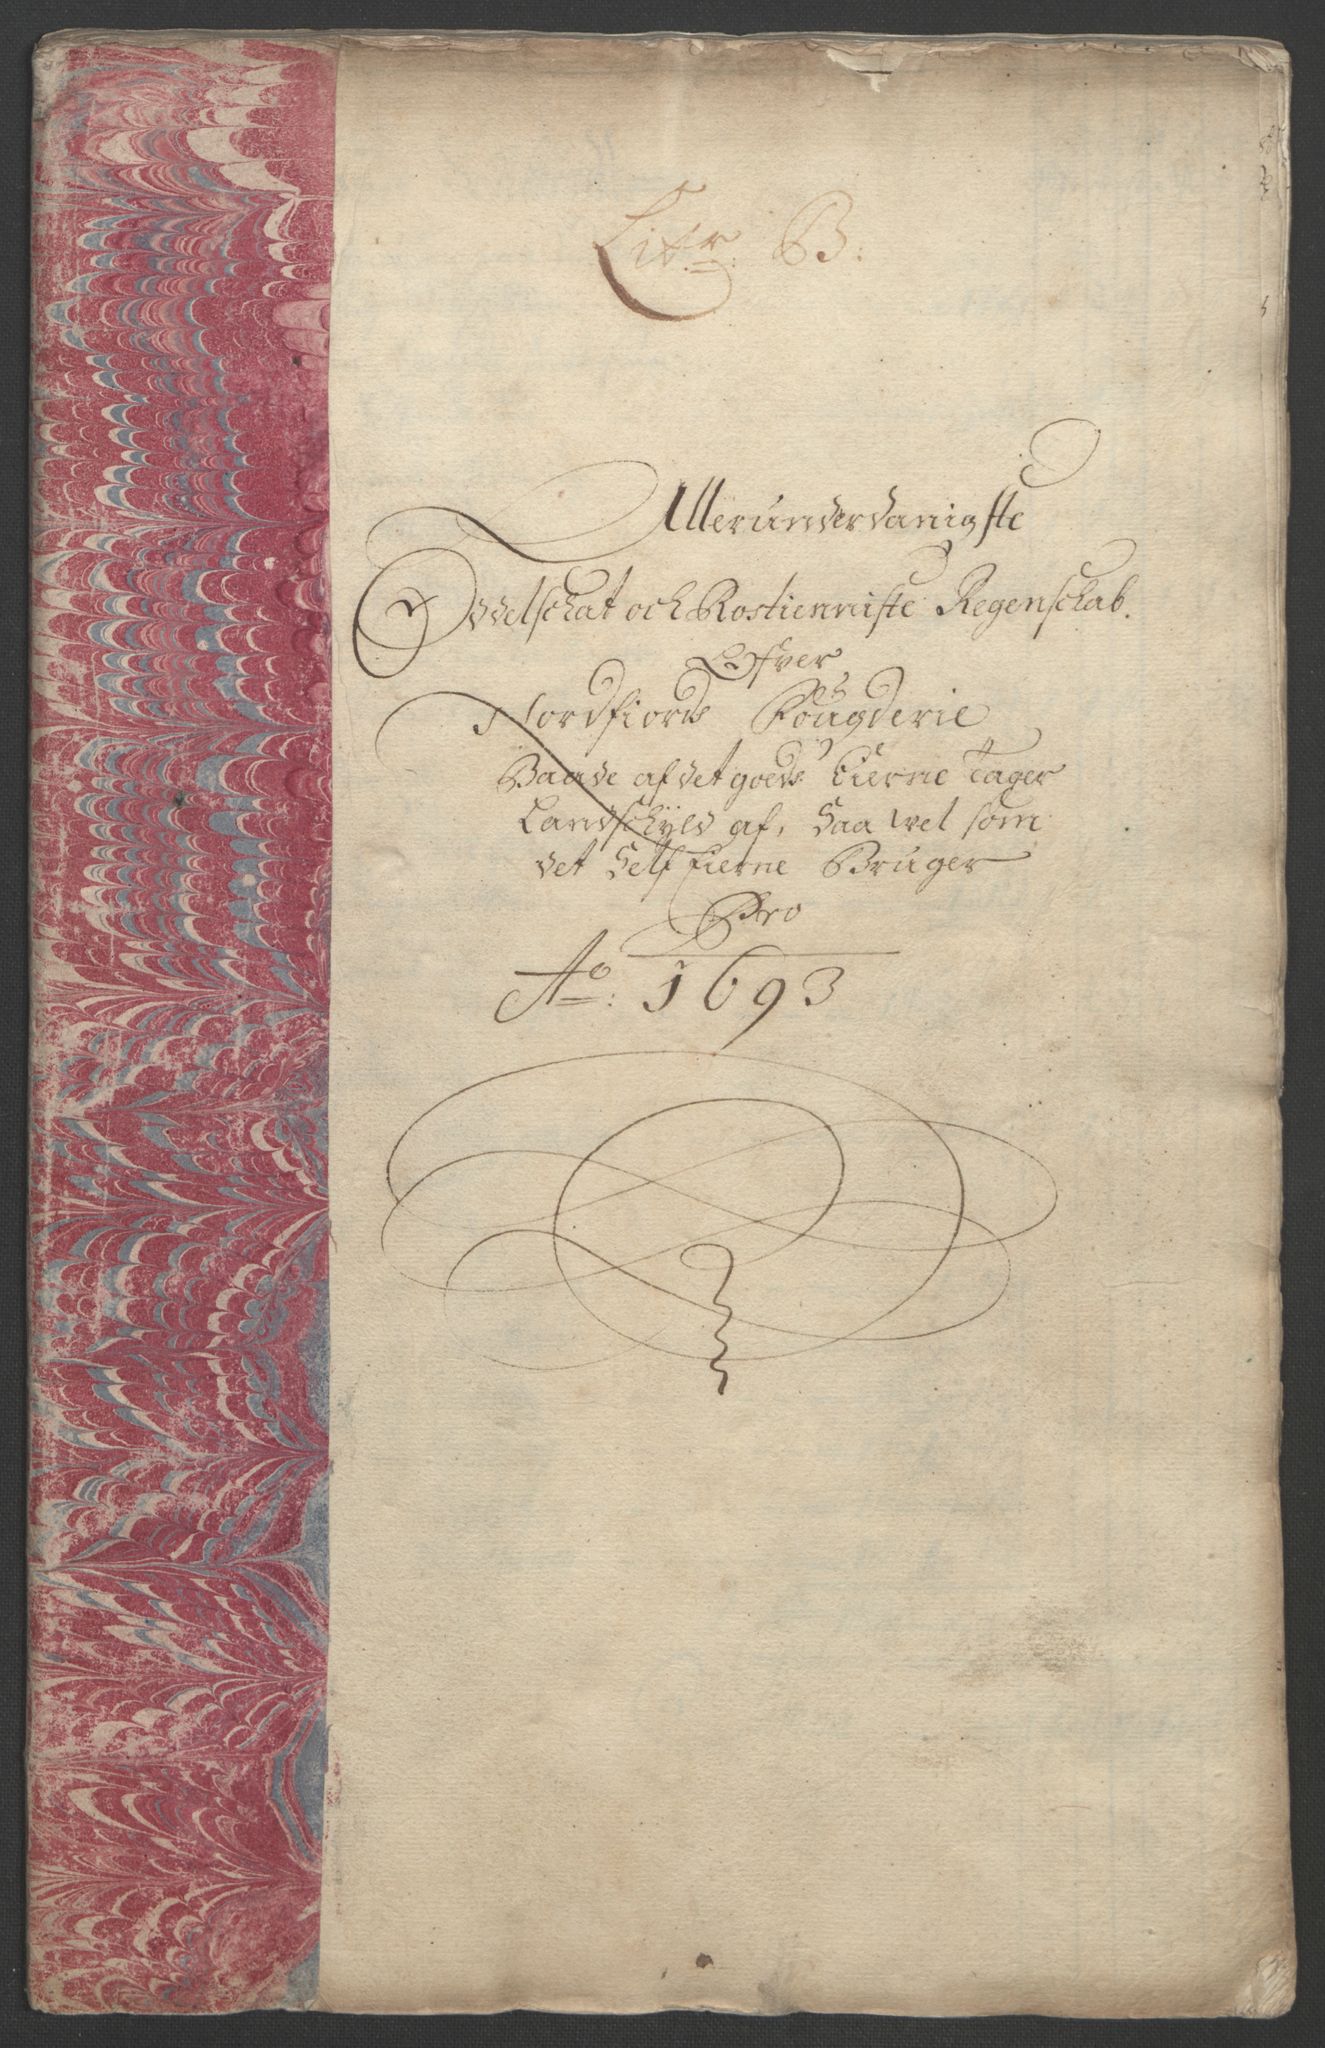 Litr: B:
Allerunderdanigste
Odelschat och Rostienniste Regenschab.
Ofver
Nordfiords Fougderie
Baade af det goeds Eierne Tager
Landschyld af, Saa vel som
det Self Eierne Bruger
Pro
Ao: 1693